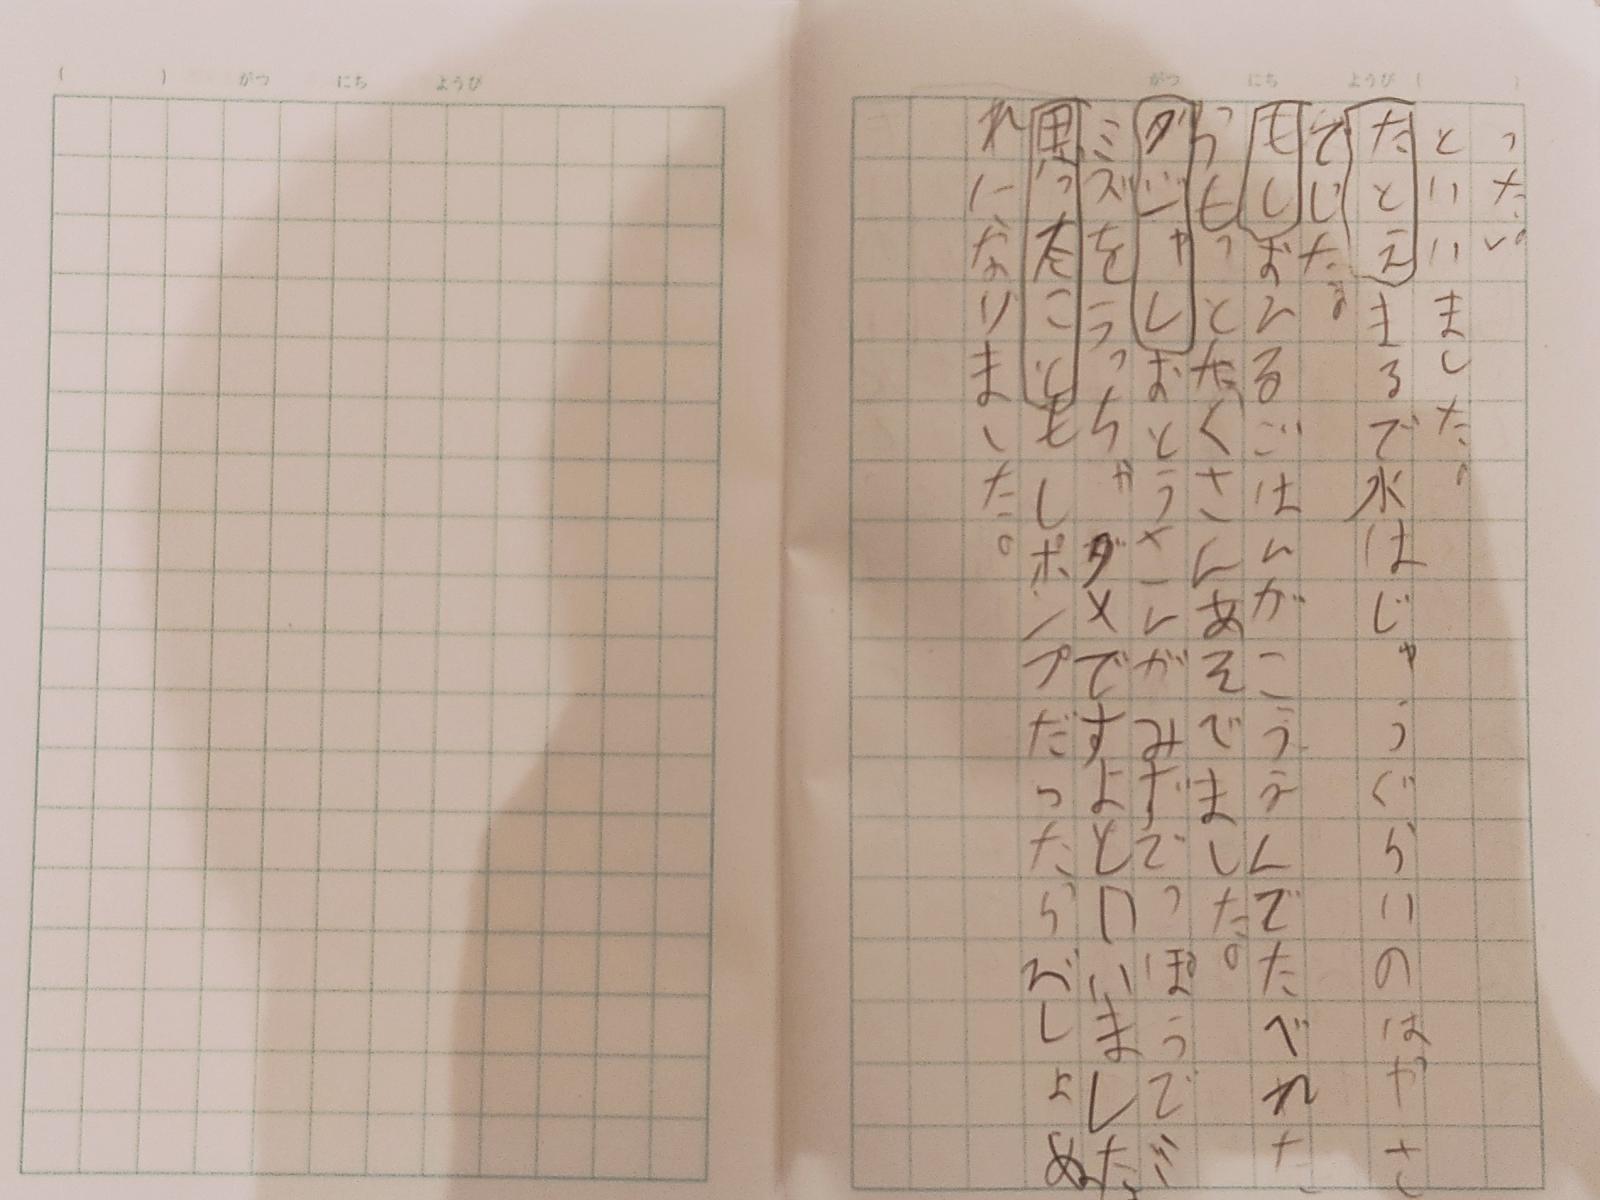 がつ　にち　ようび（　）
った。」
といいました。
たとえまるで水はじゃうぐらいのはやさ
でした。
もしおひるごはんがこうえんでたべれた
らもっとたくさんあそでました。
ダジャレおとうさんがみずでっぽうでミ
ミズをうっちゃダメですよといいました
思ったこともしポンプだったらびしょぬ
れになりました。
（　）　がつ　にち　ようび